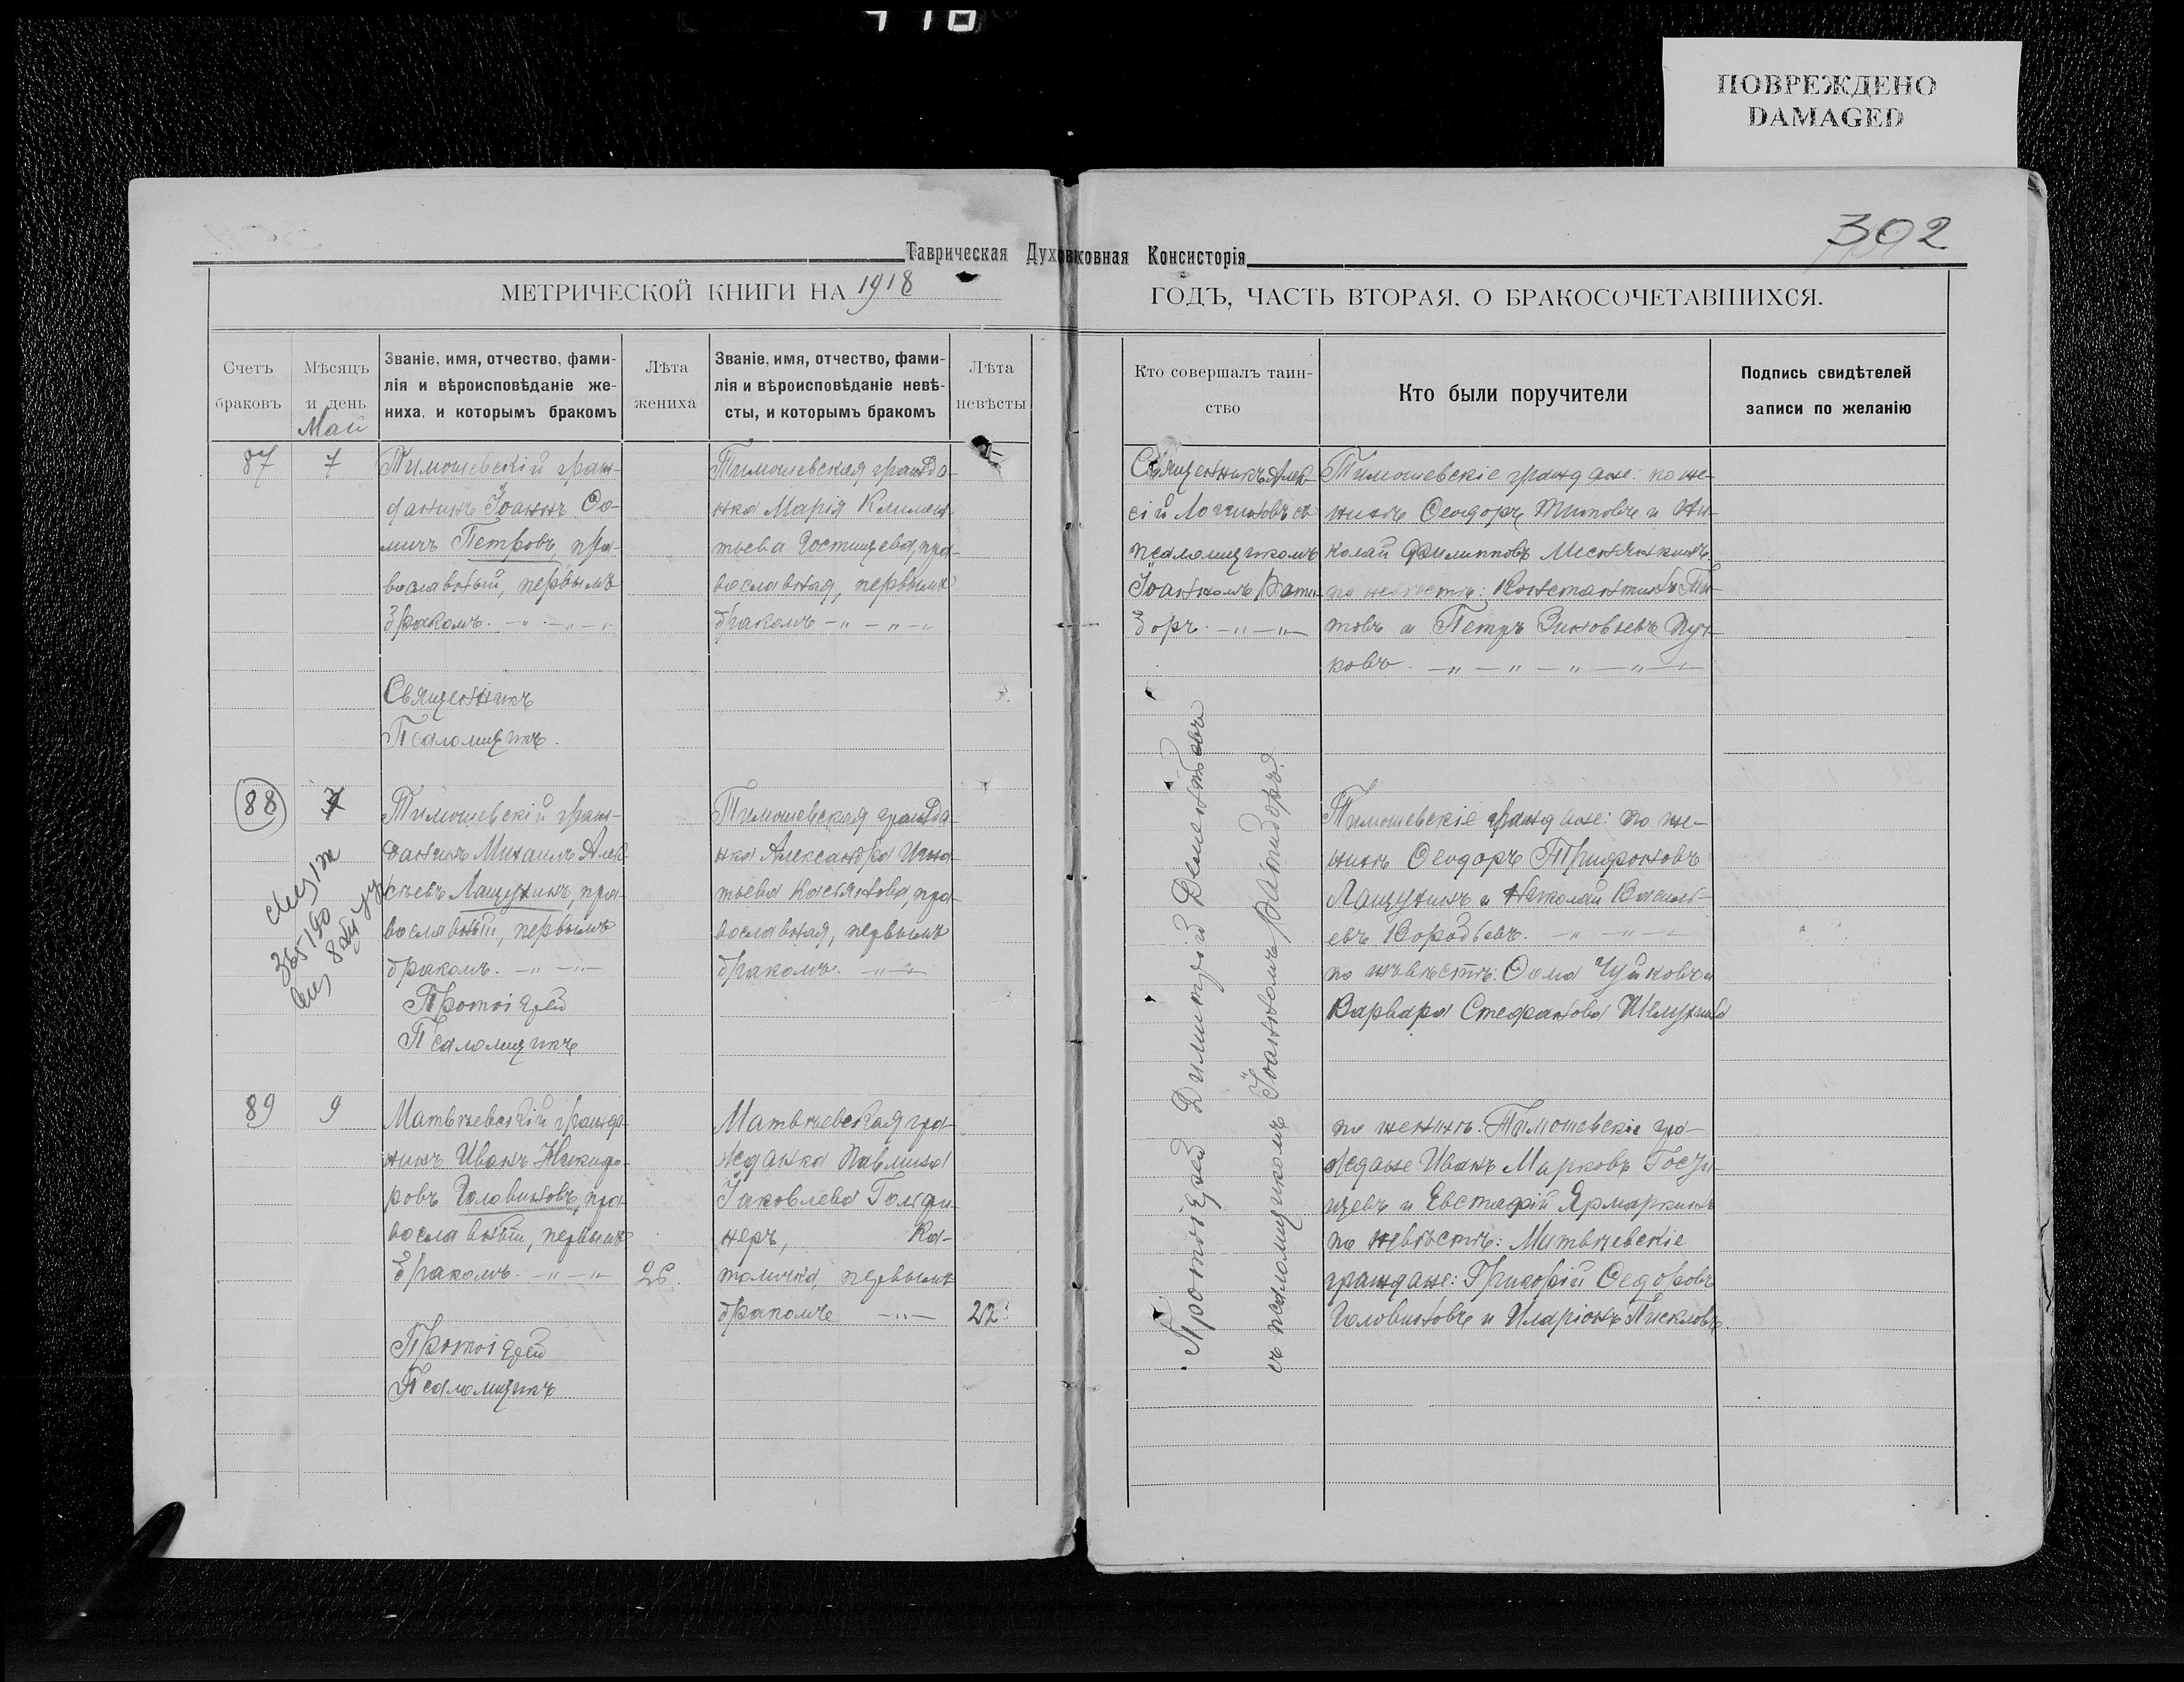 ПОВРЕЖДЕНО
DAMAGED
302
Таврическая Духовковная Консисторія
МЕТРИЧЕСКОЙ КНИГИ НА 1918
ГОДЪ, ЧАСТЬ ВТОРАЯ. О БРАКОСОЧЕТАВШИХСЯ.
Счетъ
браковъ
Мѣсяцъ
и день
Май
Званіе, имя, отчество, фами-
лія и вѣроисповѣданіе же-
ниха, и которымъ бракомъ
Лѣта
жениха
Званіе, имя, отчество, фами-
лія и вѣроисповѣданіе невѣ-
сты, и которымъ бракомъ
Лѣта
невѣсты
Кто совершалъ таин-
ство
Кто были поручители
Подпись свидѣтелей
записи по желанію
87
7
Тимошевскій граж-
данинъ Іоаннъ Ѳо-
мичъ Петровъ, пра-
вославный, первымъ
бракомъ.
Священникъ
Псаломщикъ.
Тимошевская гражда-
нка Марія Климен-
тьева Гостищева, пра-
вославная, первымъ
бракомъ
Священникъ Алек-
сій Логиновъ съ
псаломщикомъ
Іоанномъ
Тимошевскіе граждане: по же-
нихѣ Ѳеодоръ Титовъ и Ни-
колай Филипповъ
по невѣстѣ: Константинъ Ти-
товъ и Петръ Зиновьевъ
ковъ.
88
7
Тимошевскій граж-
данинъ Михаилъ Алек-
сѣевъ Лащухинъ, пра-
вославный, первымъ
бракомъ.
Протоіерей
Псаломщикъ
Тимошевская гражда-
нка Александра Игна-
тьева Касьянова, пра-
вославная, первымъ
бракомъ.
Тимошевскіе граждане: по же-
нихѣ Ѳеодоръ Трифоновъ
Лащухинъ и Николай Василь-
евъ Воробьевъ.
по невѣстѣ: Ѳома Чуйковъ и
Варвара Стефанова
89
9
Матвѣевскій гражда-
нинъ Иванъ Никифо-
ровъ Головиновъ, пра-
вославный, первымъ
бракомъ.
26.
Протоіерей
Псаломщикъ
Матвѣевская гра-
жданка Павлина
Яковлева
неръ, Ка-
толичка, первымъ
бракомъ
22
Протоіерей Димитрій Дементьевъ
съ псаломщикомъ Іоанномъ
по женихѣ: Тимошевскіе гра-
ждане Иванъ Марковъ Гости-
щевъ и Евстафій Ярмаркинъ
по невѣстѣ: Матвѣевскіе
граждане: Григорій Ѳедоровъ
Головиновъ и Иларіонъ Писклов